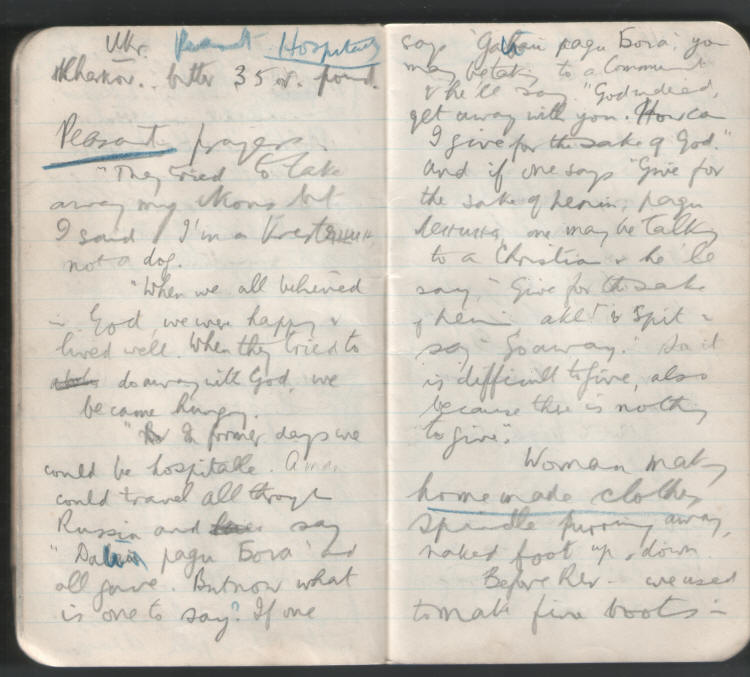 Ukr. Peasant Hospitality
Kharkov. butter 35 r. pound.
Peasant prayers.
"They tried to take
away my ikons but
I said, I'm a
not a dog.
"When we all believed
in God, we were happy &
lived well. When they tried to
do away with God, we
became hungry.
"In former days we
could be hospitable. A man
could travel all through
Russia and say
" ради Бога" and
all gave. But now what
is one to say? If one
says " ради Бога", you
may be talking to a Communist
& he'll say. "God indeed,
get away with you. How can
I give for the sake of God."
And if one says "Give for
the sake of Lenin, ради
Ленина, one may be talking
to a Christian & he'll
say, "Give for the sake
of Lenin & spit &
say "Go away." So it
is difficult to give, also
because there is nothing
to give".
Woman making
homemade clothes
spindle purring away,
naked foot up & down.
Before Rev - we used
to make fine boots -